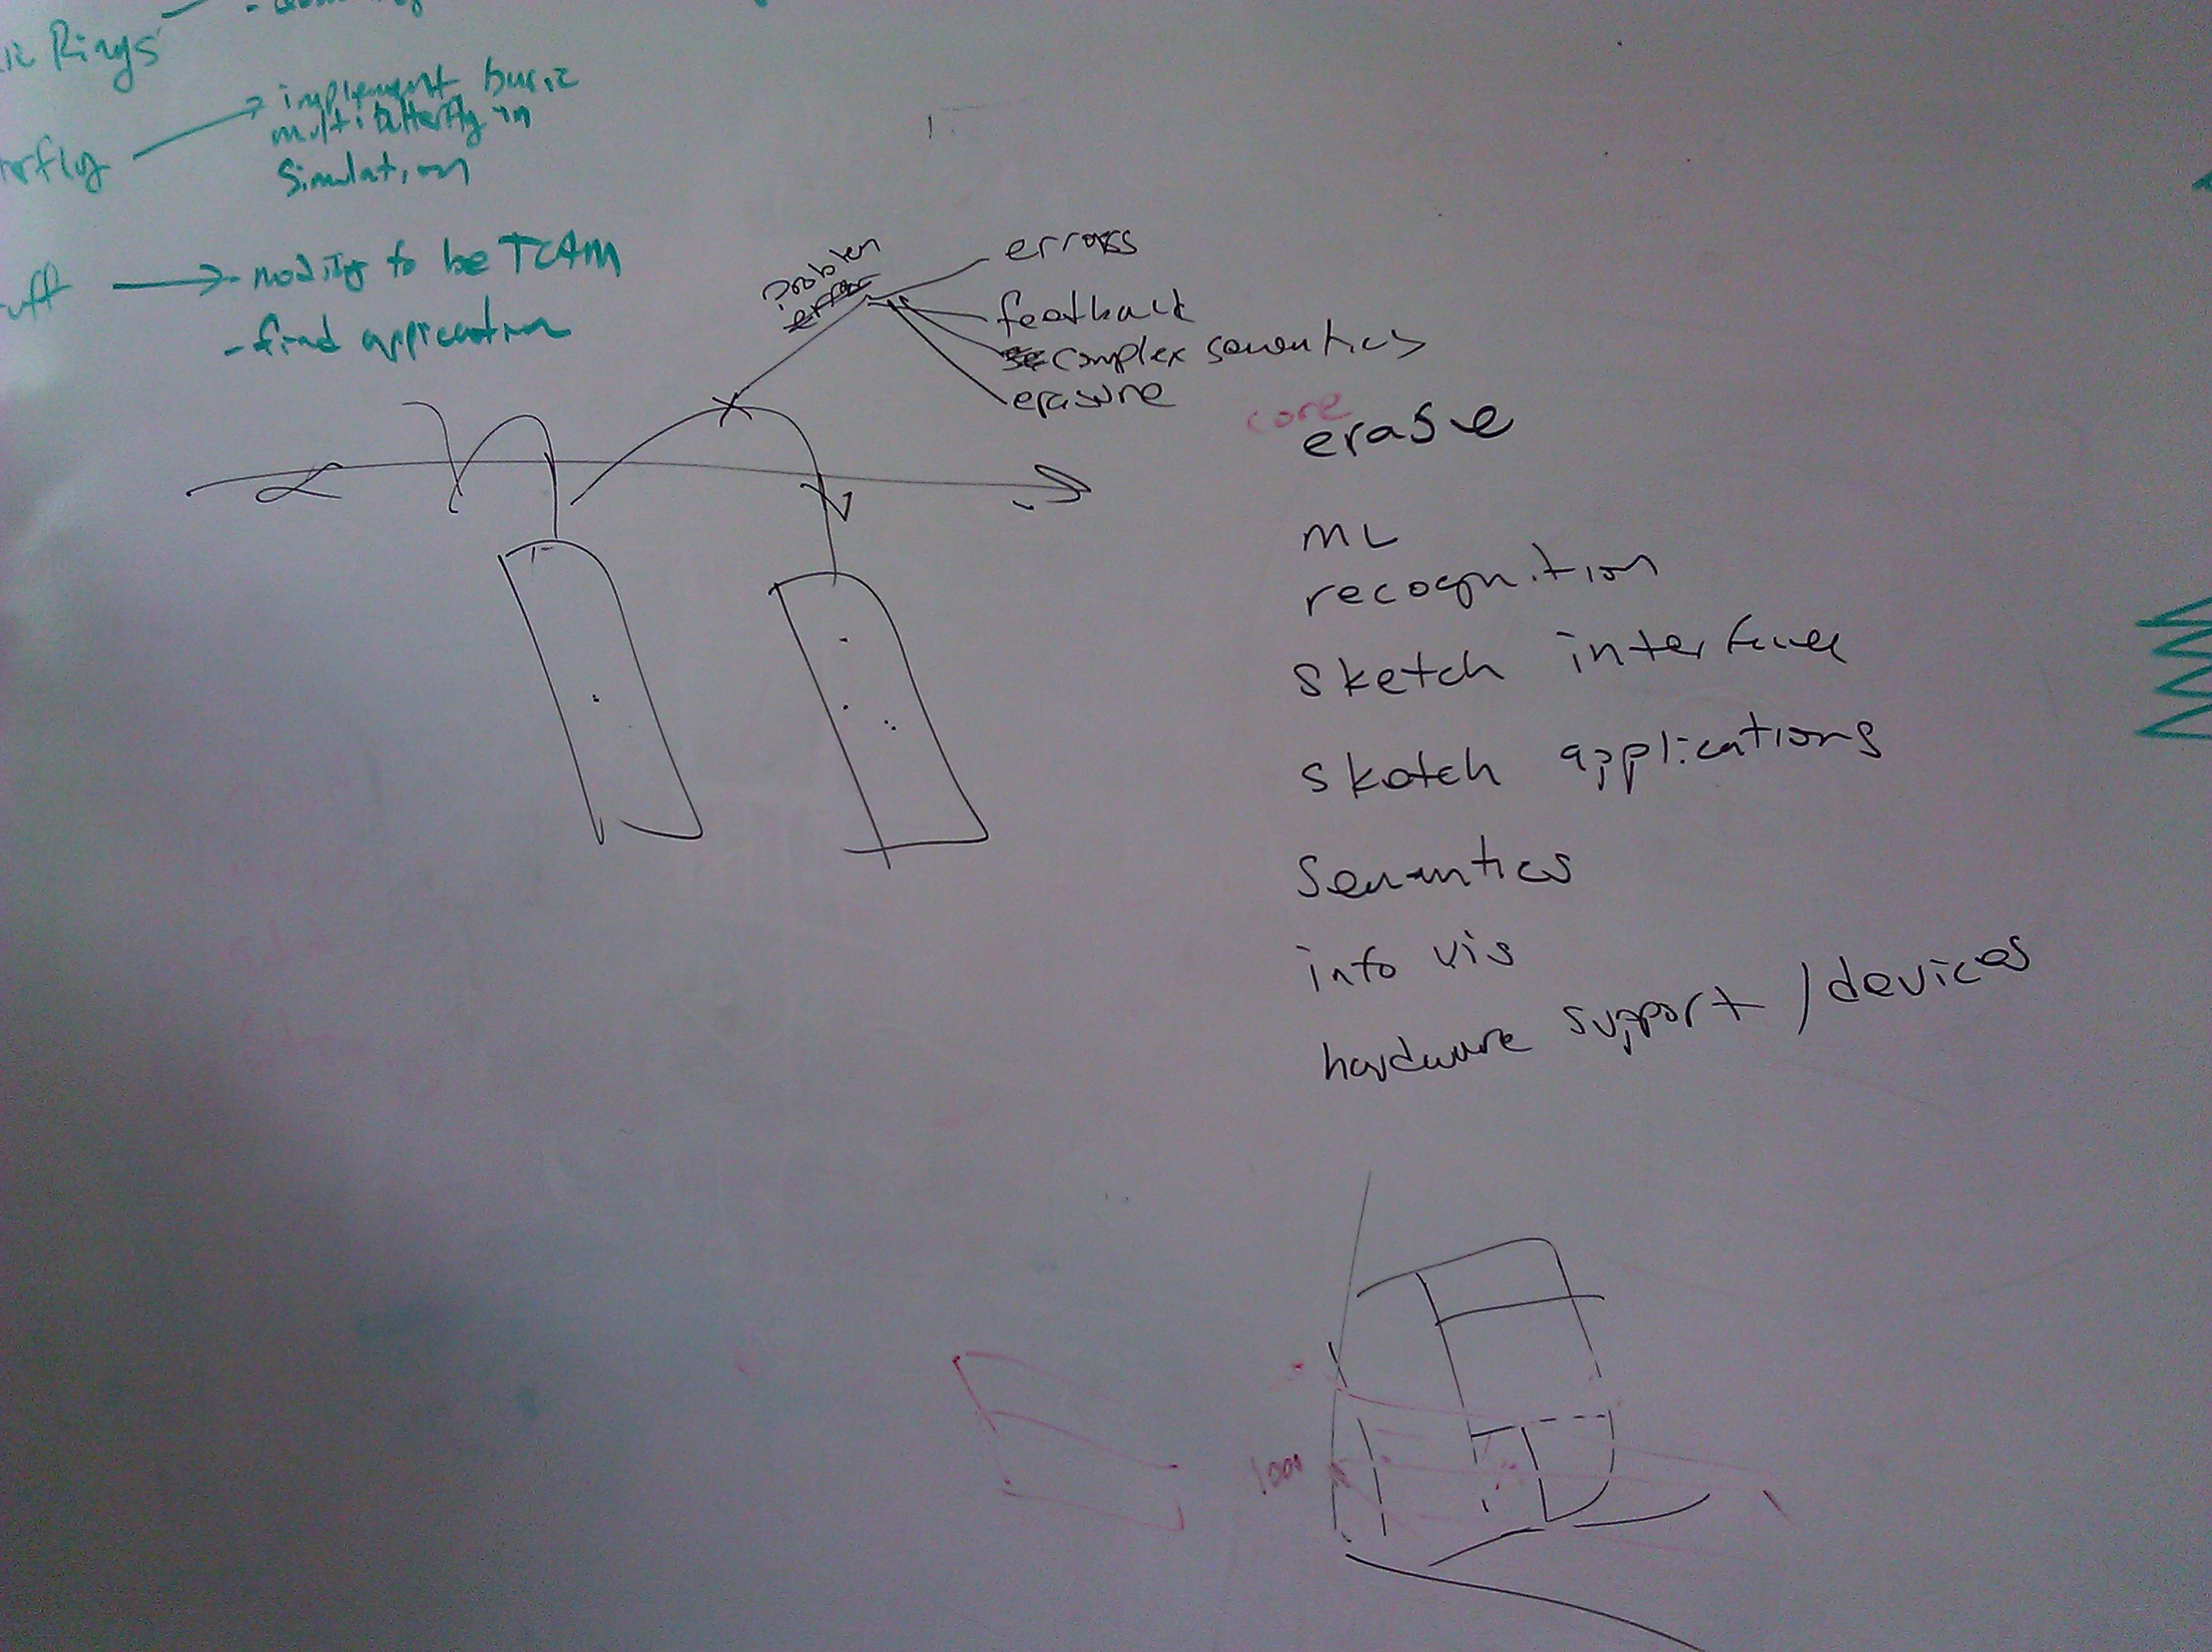 Rings
implement basic
multibutterfly in
simulation
erfly
uff
- modify to be TCAM
- find application
problem
error
errors
feedback
complex semantics
erasure
core
erase
ML
recognition
sketch interface
sketch applications
semantics
info vis
hardware support / devices